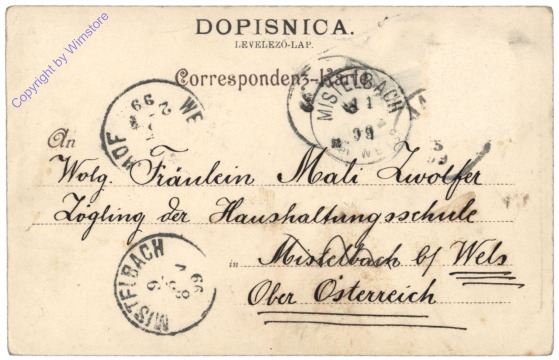 DOPISNICA.
LEVELEZŐ-LAP.
Correspondenz-Karte
Copyright by Wimstore
MISTELBACH
99
HOF
WE
99
An
Wolg. Fräulein Mali Zwolfer
Zögling der Haushaltungsschule
in Mistelbach b/ Wels
Ober Österreich
MISTELBACH
99